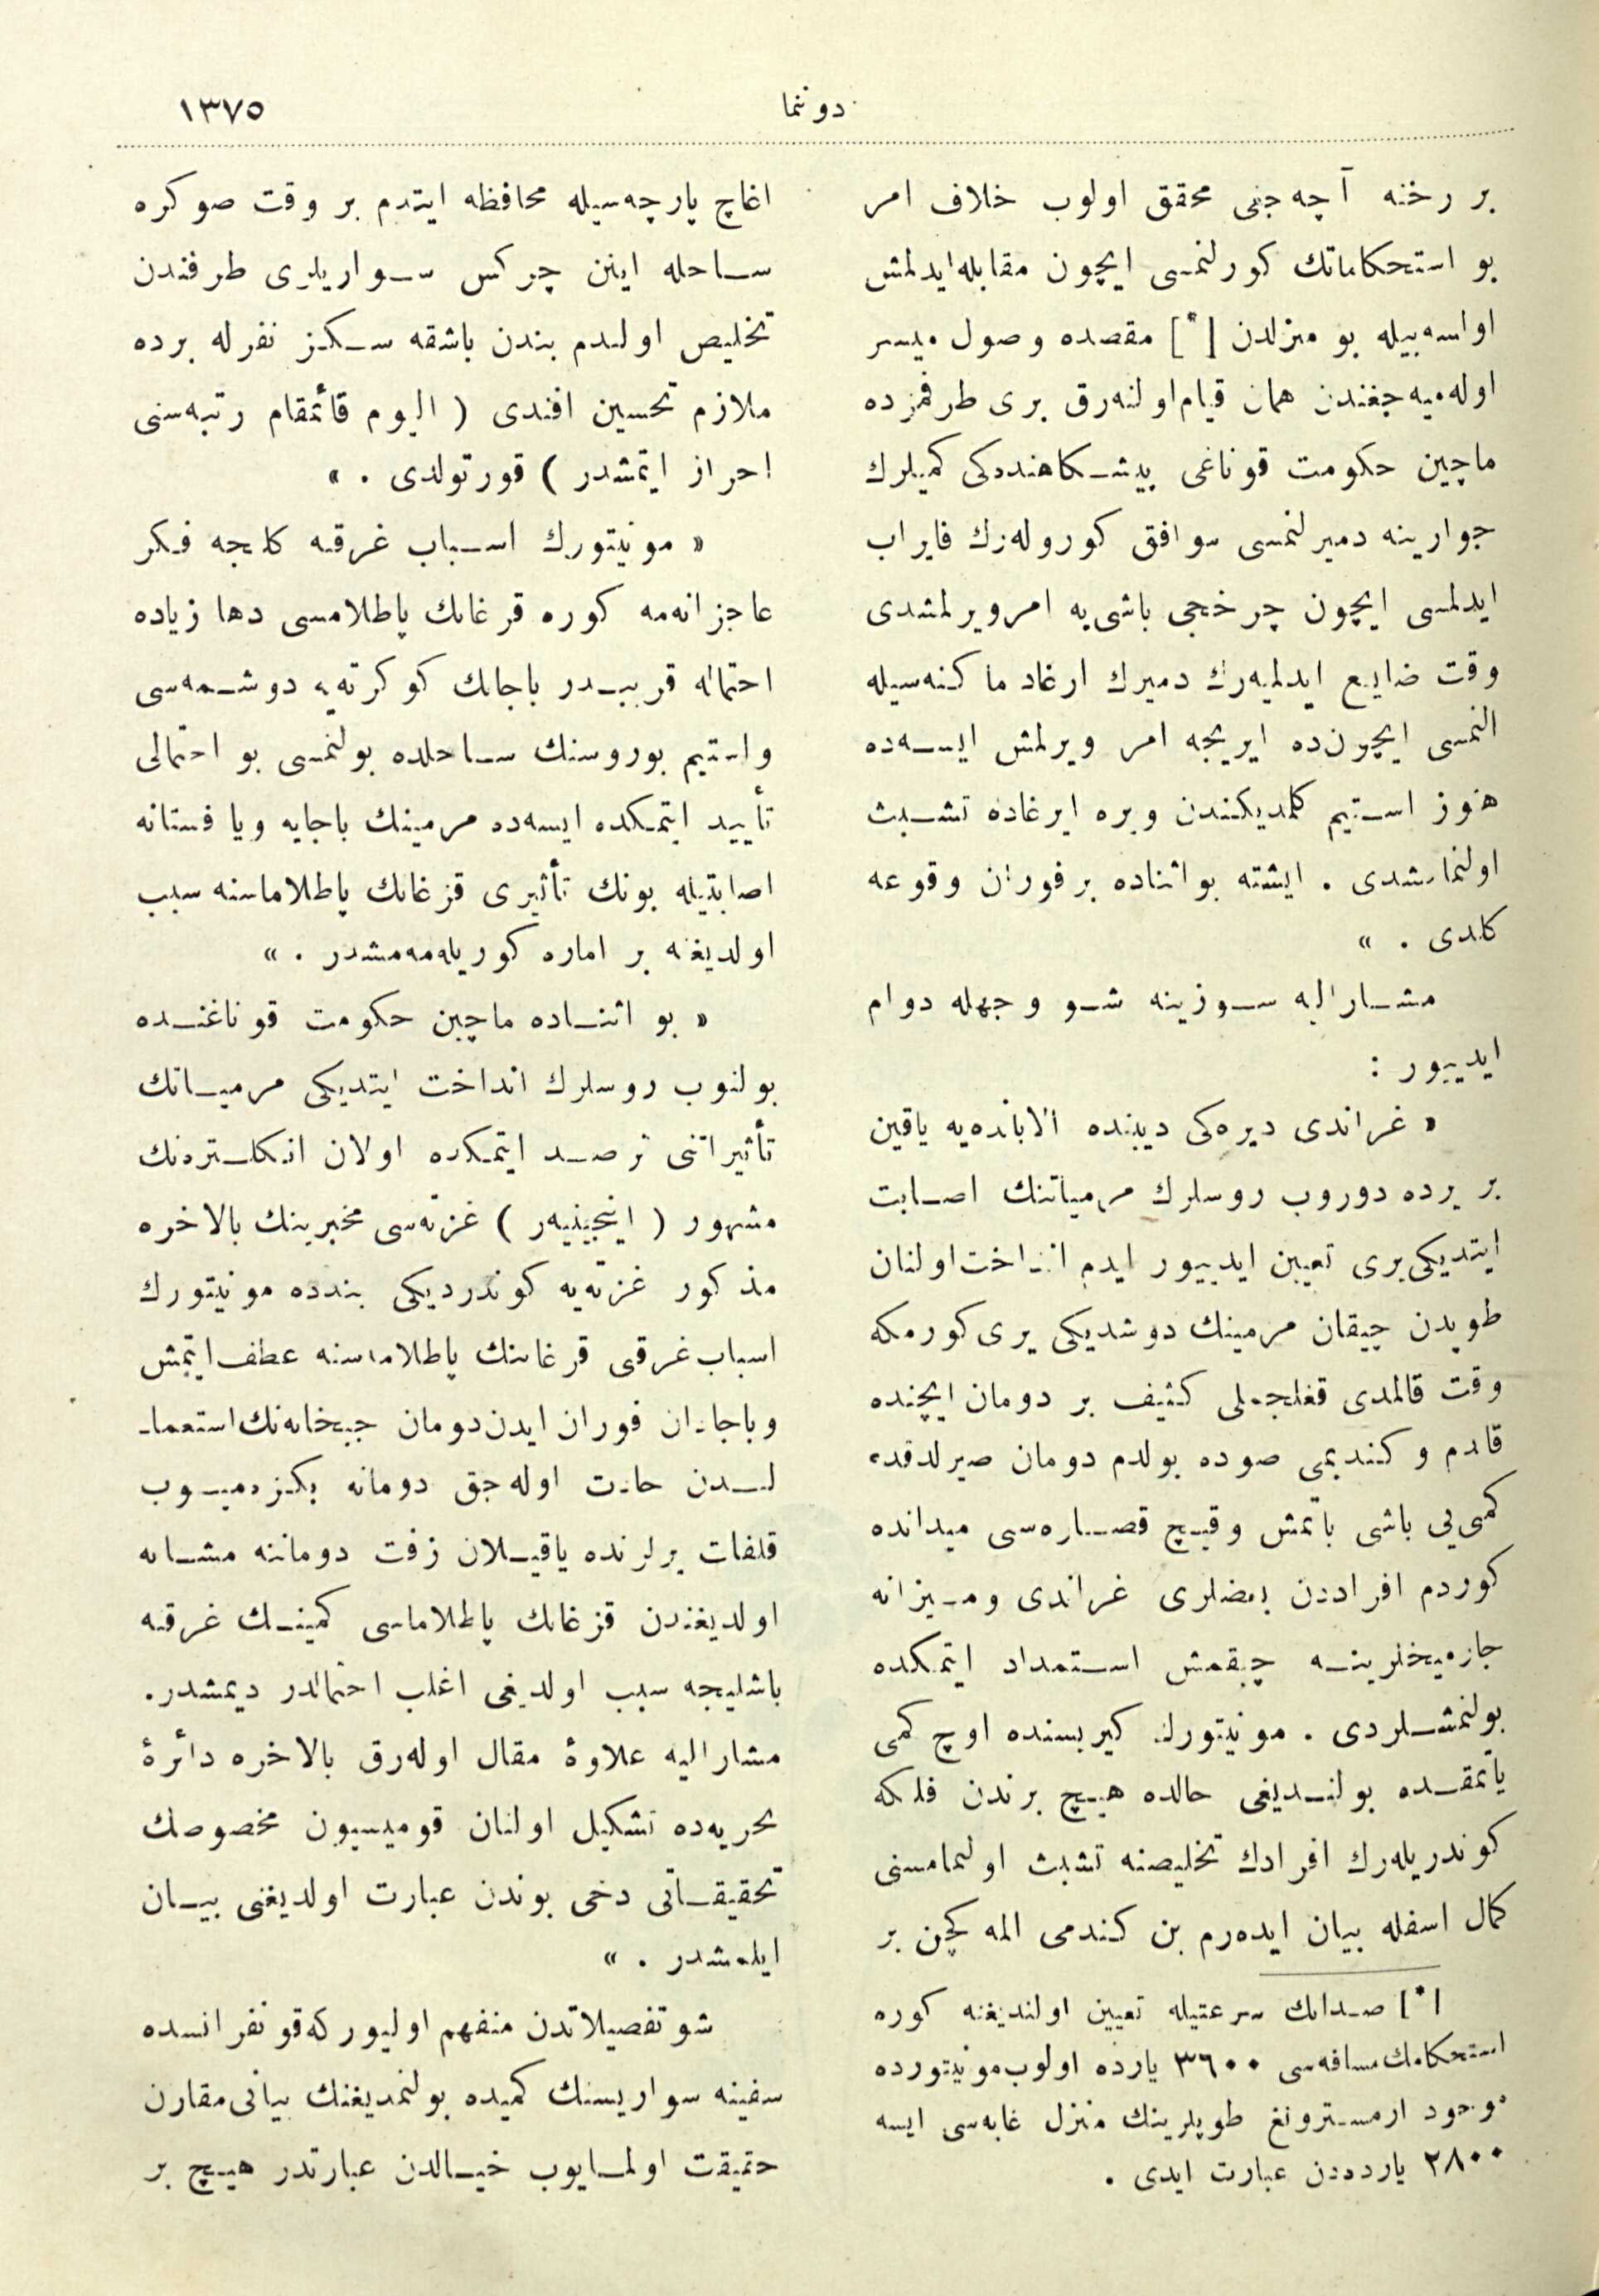 دوننما
١٣٧٥
بر رخنه آچه جغی محقق اولوب خلاف امر
بو استحكاماتك كورلنمسی ایچون مقابله ایدلمش
اولسه بیله بو منزلدن [*] مقصده وصول میسر
اوله میه جغندن همان قیام اولنه رق بری طرفمزده
ماچین حكومت قوناغی پیشكاهنده كی كمیلرك
جوارینه دمیرلنمسی موافق كورولهرك فایراب
ایدلمسی ایچون چرخجی باشی یه امر ویرلمشدی
وقت ضایع ایدلمیهرك دمیرك ارغاد ماكنه سیله
النمسی ایچون ده ایریجه امر ویرلمش ایسه ده
هنوز استیم كلمدیكندن ویره ایرغاده تشبث
اولنمامشدی . ایشته بو اثناده بر فوران وقوعه
كلدی . »
مشار الیه سوزینه شو وجهله دوام
ایدییور :
« غراندی دیره كی دیبنده الاباندهیه یاقین
بر یرده دوروب روسلرك مرمیاتنك اصابت
ایتدیكی یری تعیین ایدییور ایدم انداخت اولنان
طوپدن چیقان مرمینك دوشدیكی یری كورمكه
وقت قالمدی قغلجملی كثیف بر دومان ایچنده
قالدم و كندیمی صوده بولدم دومان صیرلدقده
كمی یی باشی باتمش و قیچ قصاره سی میدانده
كوردم افراددن بعضلری غراندی و میزانه
چارمیخلرینه چیقمش استمداد ایتمكده
بولنمشلردی . مونیتورك كیریسنده اوچ كمی
یاتمقده بولندیغی حالده هیچ برندن فلكه
كوندریلهرك افرادك تخلیصنه تشبث اولنمامسنی
كمال اسفله بیان ایدهرم بن كندمی المه كچن بر
[*] صدانك سرعتیله تعیین اولندیغنه كوره
استحكامك مسافه سی ٣٦٠٠ یارده اولوب مونیتورده
موجود ارمسترونغ طوپلرینك منزل غایه سی ایسه
٢٨٠٠ یارده دن عبارت ایدی .
اغاچ پارچه سیله محافظه ایتدم بر وقت صوكره
ساحله اینن چركس سواریلری طرفندن
تخلیص اولندم بندن باشقه سكز نفرله برده
ملازم تحسین افندی ( الیوم قائمقام رتبه سنی
احراز ایتمشدر ) قورتولدی . »
« مونیتورك اسباب غرقنه كلنجه فكر
عاجزانه مه كوره قزغانك پاطلامسی دها زیاده
احتماله قریبدر باجانك كوكرته یه دوشمه سی
واستیم بوروسنك ساحلده بولنمسی بو احتمالی
تأیید ایتمكده ایسه ده مرمینك باجایه ویا فستانه
اصابتیله بونك تأثیری قزغانك پاطلاماسنه سبب
اولدیغنه بر اماره كوریله مه مشدر . »
« بو اثناده ماچین حكومت قوناغنده
بولنوب روسلرك انداخت ایتدیكی مرمیاتك
تأثیراتنی ترصد ایتمكده اولان انكلترهنك
مشهور ( اینجینیهر ) غزته سی مخبرینك بالاخره
مذكور غزته یه كوندردیكی بندده مونیتورك
اسباب غرقی قزغاننك پاطلاماسنه عطف ایتمش
وباجادن فوران ایدن دومان جبخانه نك استعما-
لندن حادث اوله جق دومانه بكزهمیوب
قلفات یرلرنده یاقیلان زفت دوماننه مشابه
اولدیغندن قزغانك پاطلاماسی كمینك غرقنه
باشلیجه سبب اولدیغی اغلب احتمالدر دیمشدر.
مشار الیه علاوۀ مقال اوله رق بالاخره دائرۀ
بحریه ده تشكیل اولنان قومیسیون مخصوصك
تحقیقاتی دخی بوندن عبارت اولدیغنی بیان
ایلهمشدر . »
شو تفصیلاتدن منفهم اولیور كه قونفرانسده
سفینه سواریسنك كمیده بولنمدیغنك بیانی مقارن
حقیقت اولمایوب خیالدن عبارتدر هیچ بر